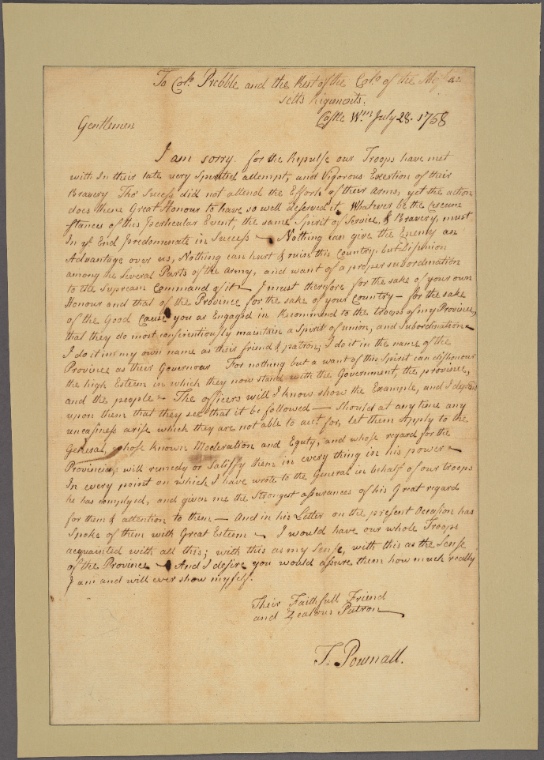 To Colo. Prebble and the Rest of the Colos of the Massac
setts Regiments.
Castle Wm. July 28. 1758
Gentlemen
I am sorry for the Repulse our Troops have met
with In their late very Spirited attempt, and Vigorous Exertion of their
Bravery Tho' Success did not attend the Efforts of their Arms, yet the action
does them Great Honour to have so well deserved it, Whatever be the circum
stances of this Particular Event, the same Spirit of Service, & Bravery, must
In ye End predominate in Success — Nothing can give the Enemy an
Advantage over us, Nothing can hurt & ruin this Country but Disunion
among the Several Parts of the Army, and want of a proper subordination
to the Supream Command of it — I must therefore for the sake of your own
Honour and that of the Province for the sake of your Country — for the sake
of the Good Cause you are Engaged in Recommend to the troops of my Province,
that they do most conscientiously maintain a Spirit of union, and Subordination
I do it in my own name as their friend & patron, I do it in the name of the
Province as their Governour For nothing but a want of this Spirit can dishonour
the high Esteem in which they now stand with the Government, the province,
and the people — The officers will I know show the Example, and I depend
upon them that they see that it be followed — Should at any time any
uneasiness arise which they are not able to act for, let them Apply to the
General, whose known Moderation and Equity, and whose regard for the
Provincials, will remedy or Satisfy them in every thing in his power —
In every point on which I have wrote to the General in behalf of our troops
he has complyed, and given me the Strongest assurances of his Great regard
for them & attention to them — And in his Letter on the present Occasion has
Spoke of them with Great Esteem — I would have our whole Troops
acquainted with all this; with this as my Sense, with this as the Sense
of the Province — And I desire you would assure them how much really
I am and will ever show myself.
Their Faithfull Friend
and Zealous Patron
T. Pownall.